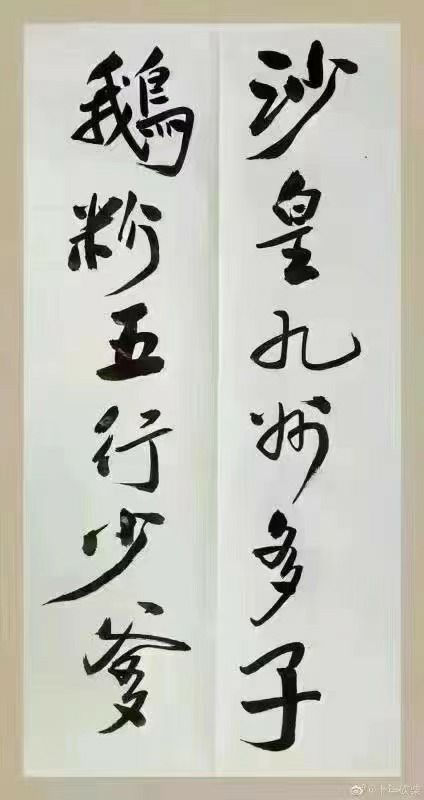 沙皇九州多子
鵝粉五行少爹